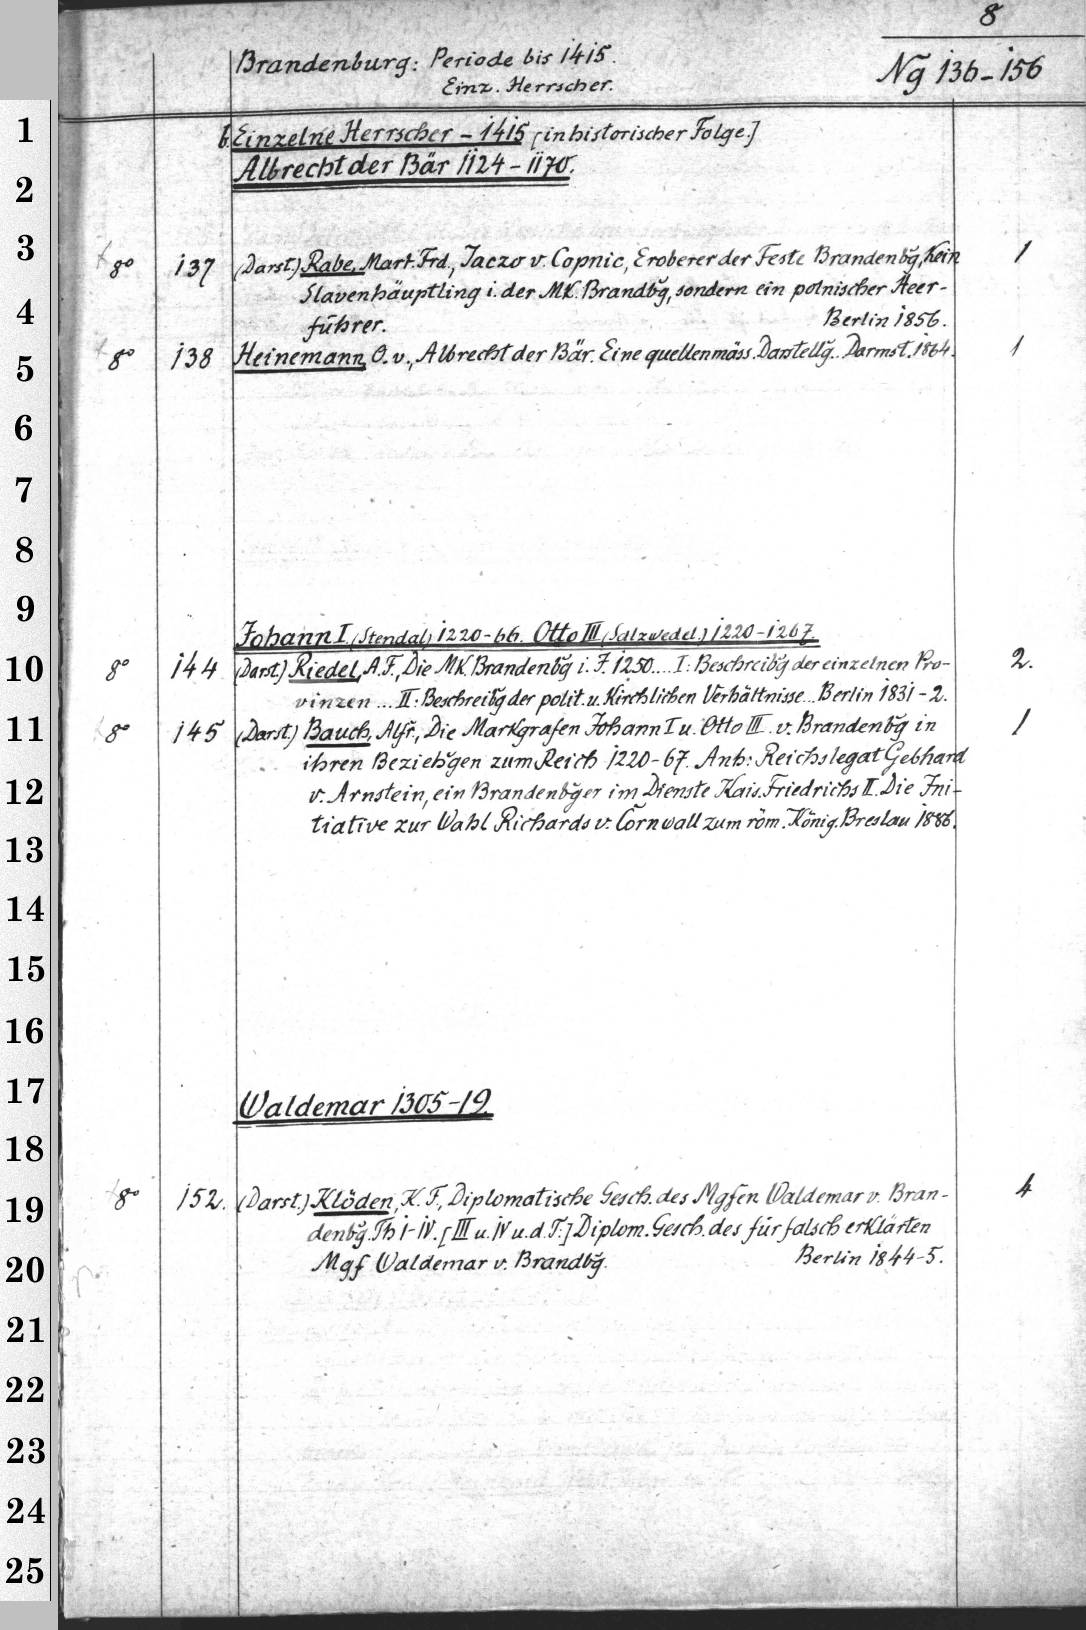 8
Brandenburg: Periode bis 1415.
Einz. Herrscher.
Ng 136-156
b. Einzelne Herrscher - 1415 [in historischer Folge.]
Albrecht der Bär 1124-1170.
8° 137 (Darst.) Rabe, Mart. Frd., Jaczo v. Copnic, Eroberer der Feste Brandenbg, kein 1
Slavenhäuptling i. der MK. Brandbg, sondern ein polnischer Heer-
führer. Berlin 1856.
8° 138 Heinemann, O. v., Albrecht der Bär. Eine quellenmäss. Darstellg. Darmst. 1864. 1
Johann I (Stendal) 1220-66. Otto III (Salzwedel) 1220-1267.
8° 144 (Darst.) Riedel, A. F., Die MK Brandenbg i. J. 1250.... I: Beschreibg der einzelnen Pro- 2.
vinzen ... II: Beschreibg der polit. u. Kirchlichen Verhältnisse... Berlin 1831-2.
8° 145 (Darst.) Bauch, Alfr., Die Markgrafen Johann I u. Otto III. v. Brandenbg in 1
ihren Beziehgen zum Reich 1220-67. Anh: Reichslegat Gebhard
v. Arnstein, ein Brandenbger im Dienste Kais. Friedrichs II. Die Ini-
tiative zur Wahl Richards v. Cornwall zum röm. König. Breslau 1886.
Waldemar 1305-19.
8° 152. (Darst.) Klöden, K. F., Diplomatische Gesch. des Mgfen Waldemar v. Bran- 4
denbg. Th I-IV. [III u. IV u. d. T:] Diplom. Gesch. des für falsch erklärten
Mgf Waldemar v. Brandbg. Berlin 1844-5.
1
2
3
4
5
6
7
8
9
10
11
12
13
14
15
16
17
18
19
20
21
22
23
24
25